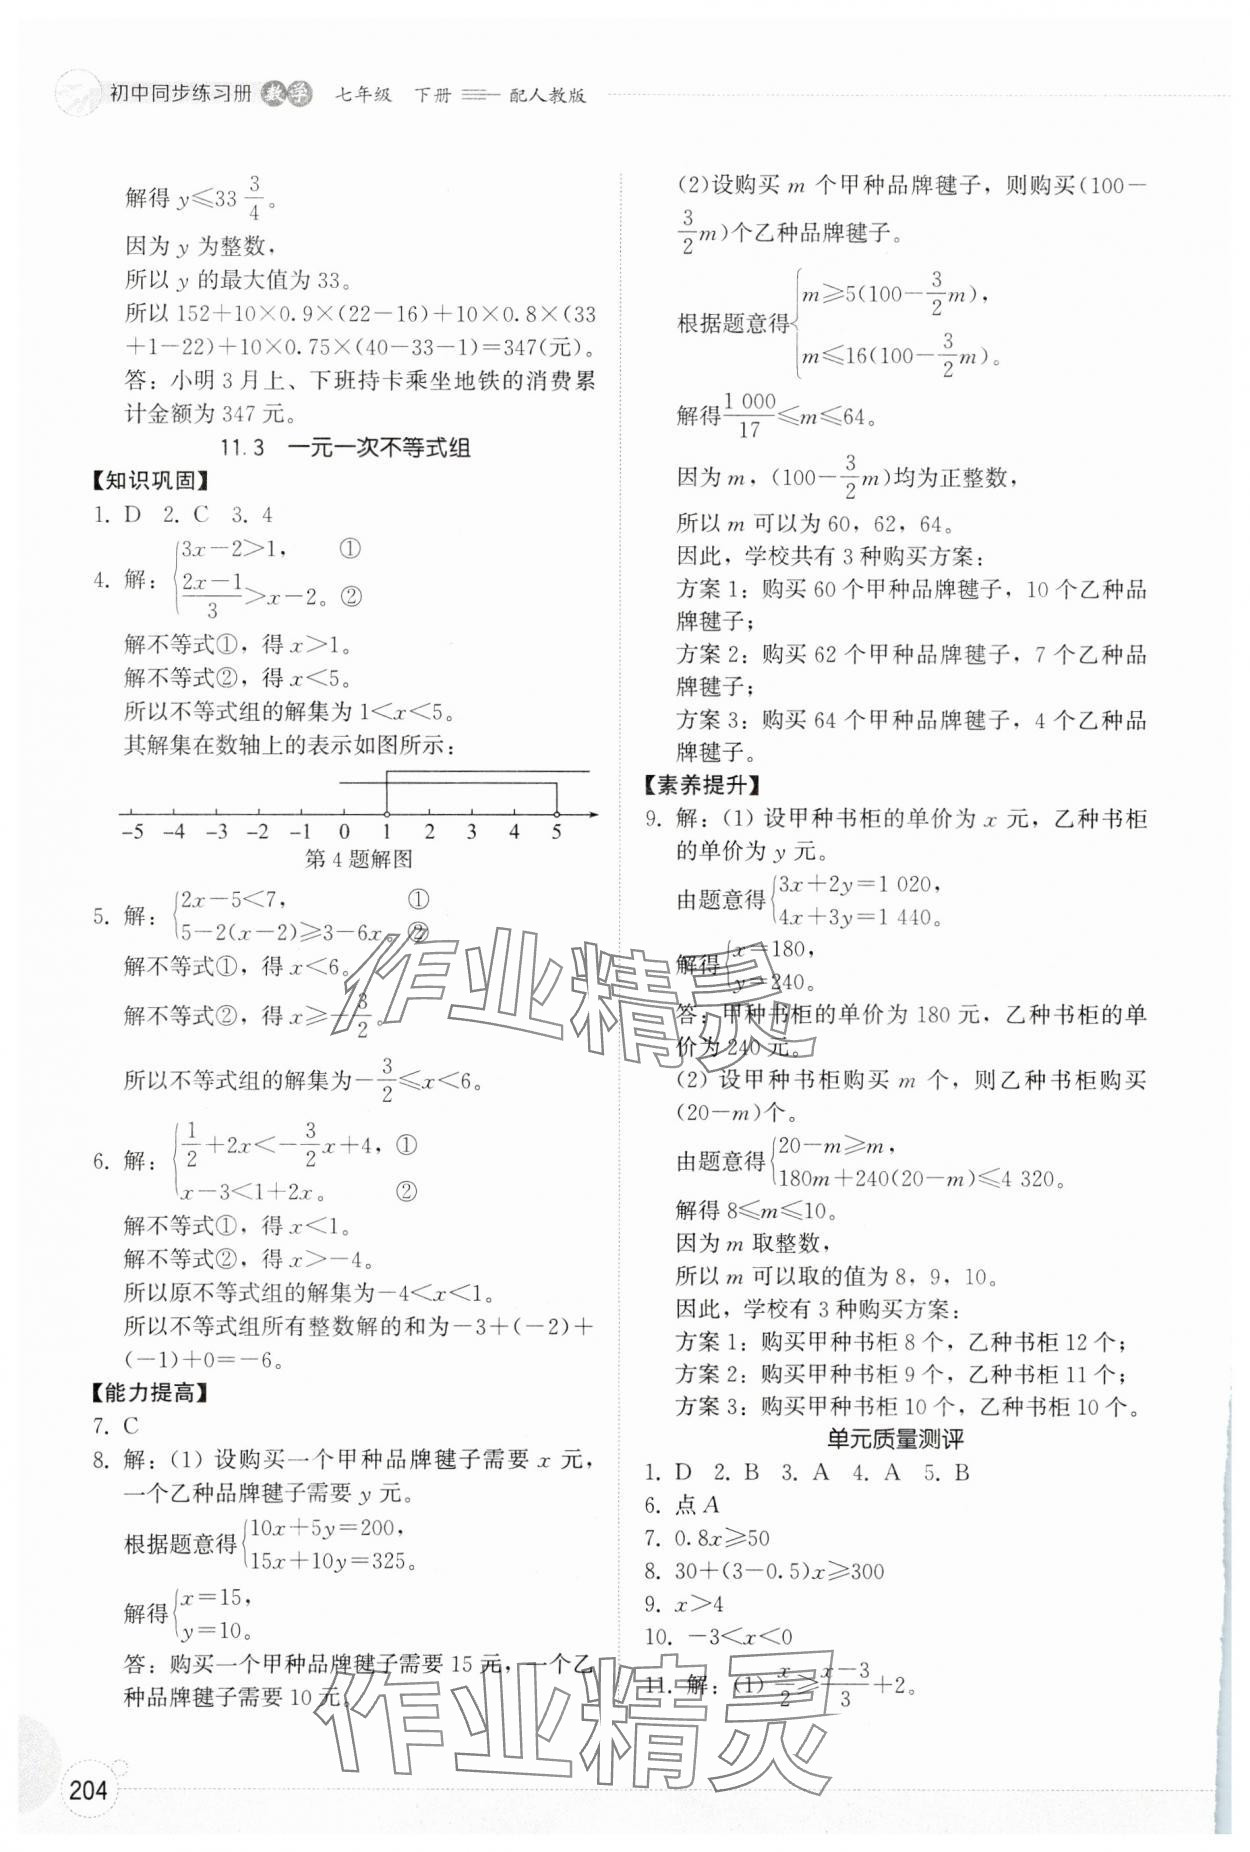 初中同步练习册 数学 七年级 下册 配人教版
解得 y≤33 3/4。
因为 y 为整数，
所以 y 的最大值为 33。
所以 152+10×0.9×(22-16)+10×0.8×(33
+1-22)+10×0.75×(40-33-1)=347(元)。
答：小明 3 月上、下班持卡乘坐地铁的消费累
计金额为 347 元。
11.3 一元一次不等式组
【知识巩固】
1. D 2. C 3. 4
4. 解：{3x-2>1， ①
(2x-1)/3>x-2。②
解不等式①，得 x>1。
解不等式②，得 x<5。
所以不等式组的解集为 1<x<5。
其解集在数轴上的表示如图所示：
-5 -4 -3 -2 -1 0 1 2 3 4 5
第 4 题解图
5. 解：{2x-5<7， ①
5-2(x-2)≥3-6x。②
解不等式①，得 x<6。
解不等式②，得 x≥-3/2。
所以不等式组的解集为-3/2≤x<6。
6. 解：{1/2+2x<-3/2x+4，①
x-3<1+2x。 ②
解不等式①，得 x<1。
解不等式②，得 x>-4。
所以原不等式组的解集为-4<x<1。
所以不等式组所有整数解的和为-3+(-2)+
(-1)+0=-6。
【能力提高】
7. C
8. 解：(1) 设购买一个甲种品牌毽子需要 x 元，
一个乙种品牌毽子需要 y 元。
根据题意得{10x+5y=200，
15x+10y=325。
解得{x=15，
y=10。
答：购买一个甲种品牌毽子需要 15 元，一个乙
种品牌毽子需要 10 元。
(2)设购买 m 个甲种品牌毽子，则购买(100-
3/2m)个乙种品牌毽子。
根据题意得{m≥5(100-3/2m)，
m≤16(100-3/2m)。
解得1 000/17≤m≤64。
因为 m，(100-3/2m)均为正整数，
所以 m 可以为 60，62，64。
因此，学校共有 3 种购买方案：
方案 1：购买 60 个甲种品牌毽子，10 个乙种品
牌毽子；
方案 2：购买 62 个甲种品牌毽子，7 个乙种品
牌毽子；
方案 3：购买 64 个甲种品牌毽子，4 个乙种品
牌毽子。
【素养提升】
9. 解：(1) 设甲种书柜的单价为 x 元，乙种书柜
的单价为 y 元。
由题意得{3x+2y=1 020，
4x+3y=1 440。
解得{x=180，
y=240。
答：甲种书柜的单价为 180 元，乙种书柜的单
价为 240 元。
(2) 设甲种书柜购买 m 个，则乙种书柜购买
(20-m)个。
由题意得{20-m≥m，
180m+240(20-m)≤4 320。
解得 8≤m≤10。
因为 m 取整数，
所以 m 可以取的值为 8，9，10。
因此，学校有 3 种购买方案：
方案 1：购买甲种书柜 8 个，乙种书柜 12 个；
方案 2：购买甲种书柜 9 个，乙种书柜 11 个；
方案 3：购买甲种书柜 10 个，乙种书柜 10 个。
单元质量测评
1. D 2. B 3. A 4. A 5. B
6. 点 A
7. 0.8x≥50
8. 30+(3-0.5)x≥300
9. x>4
10. -3<x<0
11. 解：(1) x/2≥(x-3)/3+2。
作业精灵
作业精灵
204